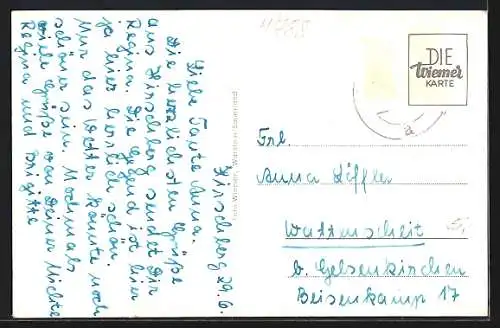 Hirschberg 29.6.
Liebe Tante Anna.
Die herzlichsten Grüße
aus Hirschberg sendet Dir
Regina. Die Gegend ist hier
ja hier herrlich schön.
Nur das Wetter könnte noch
schöner sein. Nochmals
viele Grüße von Deiner Nichte
Regina und Brigitte
DIE
Wiemer
KARTE
Frl.
Anna Löffler
Wattenscheit
b. Gelsenkirchen
Beisenkamp 17
a